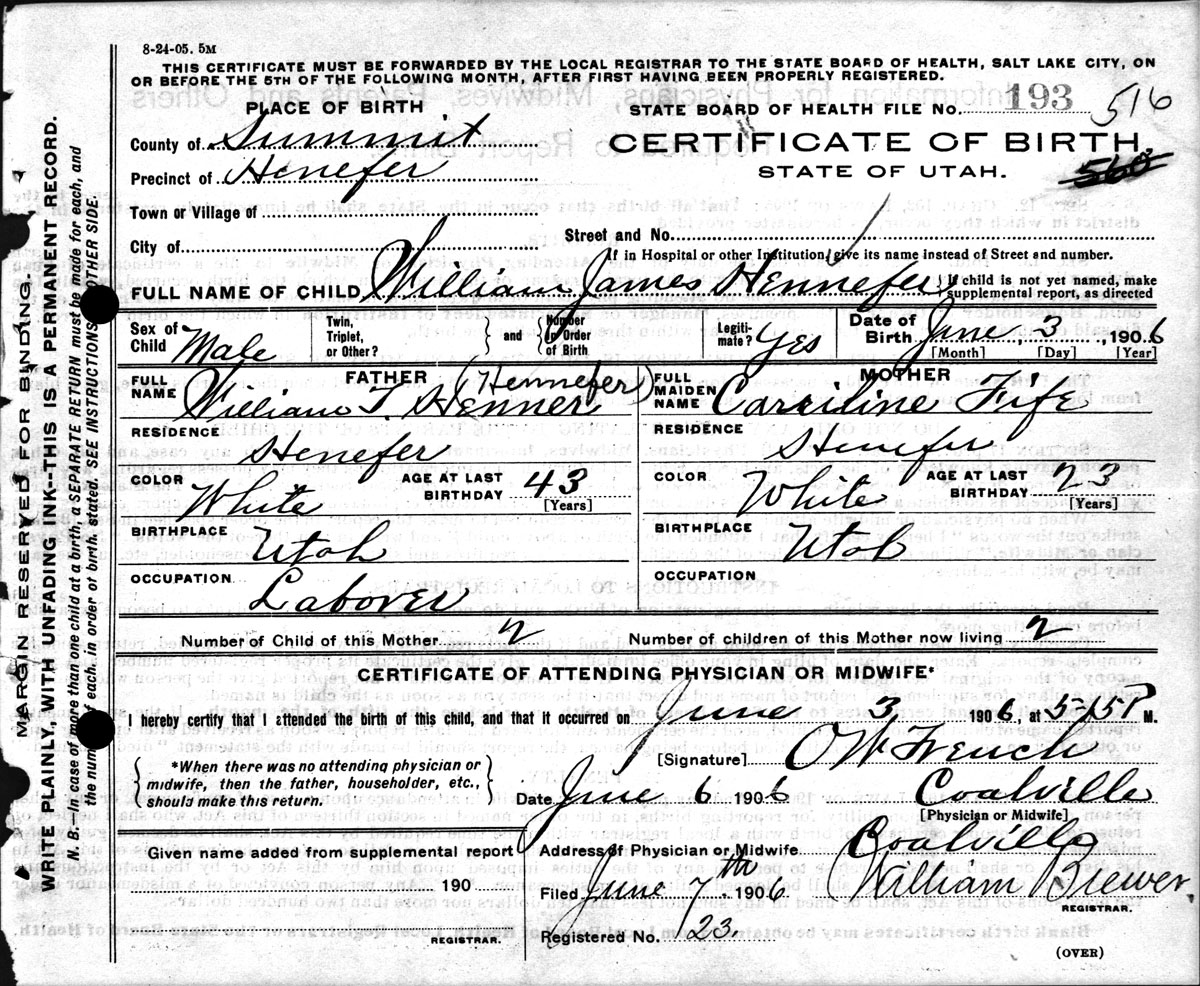 8-24-05. 5M
THIS CERTIFICATE MUST BE FORWARDED BY THE LOCAL REGISTRAR TO THE STATE BOARD OF HEALTH, SALT LAKE CITY, ON
OR BEFORE THE 5TH OF THE FOLLOWING MONTH, AFTER FIRST HAVING BEEN PROPERLY REGISTERED.
PLACE OF BIRTH
STATE BOARD OF HEALTH FILE No. 193 516
County of Summit
CERTIFICATE OF BIRTH.
Precinct of Henefer
STATE OF UTAH. 560
Town or Village of
City of
Street and No.
If in Hospital or other Institution, give its name instead of Street and number.
FULL NAME OF CHILD William James Hennefer
If child is not yet named, make
supplemental report, as directed
Sex of Child Male
Twin, Triplet, or Other?
and
Number in Order of Birth
Legitimate? Yes
Date of Birth June 3, 1906
[Month] [Day] [Year]
FATHER
FULL NAME William T. Henner (Hennefer)
MOTHER
FULL MAIDEN NAME Carriline Fife
RESIDENCE Henefer
RESIDENCE Henefer
COLOR White AGE AT LAST BIRTHDAY 43 [Years]
COLOR White AGE AT LAST BIRTHDAY 23 [Years]
BIRTHPLACE Utah
BIRTHPLACE Utah
OCCUPATION Laborer
OCCUPATION
Number of Child of this Mother 2
Number of children of this Mother now living 2
CERTIFICATE OF ATTENDING PHYSICIAN OR MIDWIFE*
I hereby certify that I attended the birth of this child, and that it occurred on June 3 1906, at 5-15 P M.
*When there was no attending physician or
midwife, then the father, householder, etc.,
should make this return.
[Signature] O W French
Date June 6 1906 Coalville
[Physician or Midwife]
Given name added from supplemental report
190
REGISTRAR.
Address of Physician or Midwife Coalville
Filed June 7th 1906 William Brewer
REGISTRAR.
Registered No. 23.
(OVER)
MARGIN RESERVED FOR BINDING.
WRITE PLAINLY, WITH UNFADING INK--THIS IS A PERMANENT RECORD.
N. B.--In case of more than one child at a birth, a SEPARATE RETURN must be made for each, and
the number of each, in order of birth, stated. SEE INSTRUCTIONS OTHER SIDE.